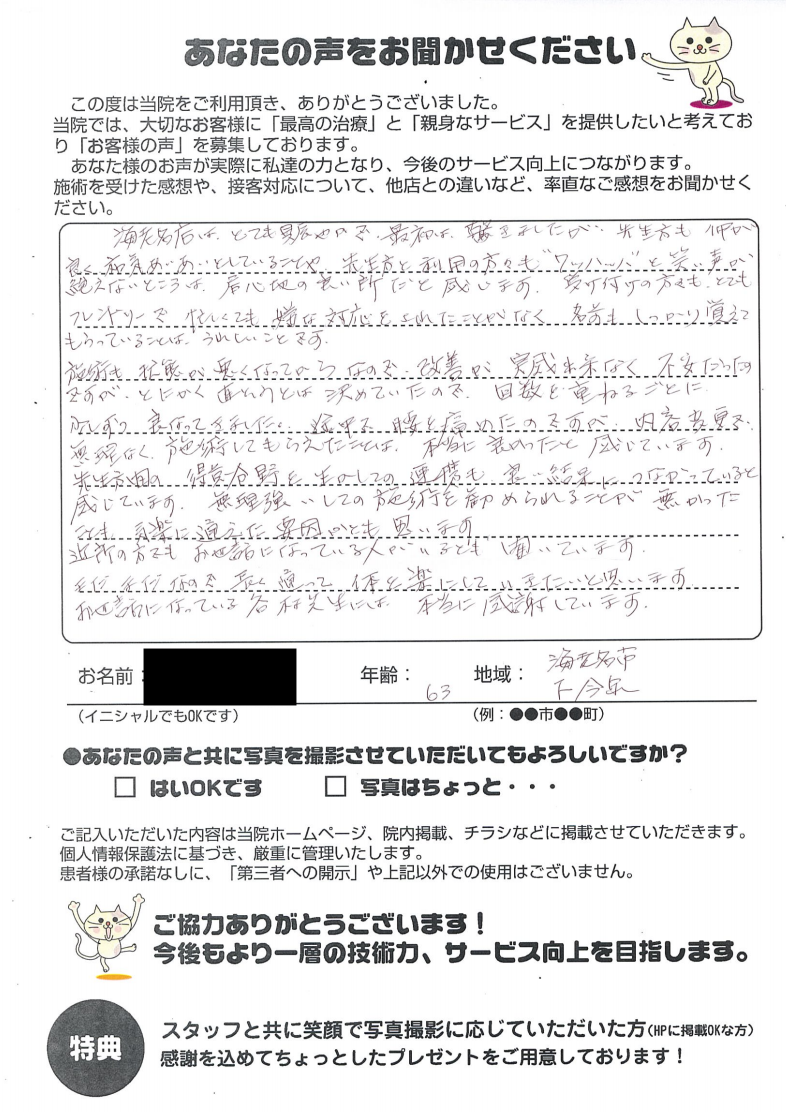 あなたの声をお聞かせください
この度は当院をご利用頂き、ありがとうございました。
当院では、大切なお客様に「最高の治療」と「親身なサービス」を提供したいと考えてお
り「お客様の声」を募集しております。
あなた様のお声が実際に私達の力となり、今後のサービス向上につながります。
施術を受けた感想や、接客対応について、他店との違いなど、率直なご感想をお聞かせく
ださい。
海老名店は、とても賑やかで、最初は、驚きましたが、先生方も仲が
良く和気あいあいとしていることや、先生方と利用の方々も"ワッハッハ"と笑い声が
絶えないところは、居心地の良い所だと感じます。受け付けの方々も、とても
フレンドリーで忙しくても嫌な対応をされたことがなく名前もしっかり覚えて
もらっていることは、うれしいことです。
施術も状態が悪くなってからなので、改善が実感出来なく不安だったの
ですが、とにかく直そうとは決めていたので、回数を重ねるごとに
少しずつ良なってきました。途中で腰を痛めたのですが、内容変更で、
無理なく施術してもらえたことは、本当に良かったと感じています。
先生方の得意分野を生かしての連携も良い結果につながっていると
感じています。無理強いしての施術を勧められることが無かった
ことも気楽に通えた要因かとも思います
近所の方でもお世話になっている人がいるとも聞いています。
まだまだなので長く通って体を楽にしていきたいと思います。
お世話になっている先生には、本当に感謝しています。
お名前：
年齢： 63
地域： 海老名市
下今泉
（イニシャルでもOKです）
（例：●●市●●町）
●あなたの声と共に写真を撮影させていただいてもよろしいですか？
□ はいOKです □ 写真はちょっと・・・
ご記入いただいた内容は当院ホームページ、院内掲載、チラシなどに掲載させていただきます。
個人情報保護法に基づき、厳重に管理いたします。
患者様の承諾なしに、「第三者への開示」や上記以外での使用はございません。
ご協力ありがとうございます！
今後もより一層の技術力、サービス向上を目指します。
特典
スタッフと共に笑顔で写真撮影に応じていただいた方(HPに掲載OKな方)
感謝を込めてちょっとしたプレゼントをご用意しております！